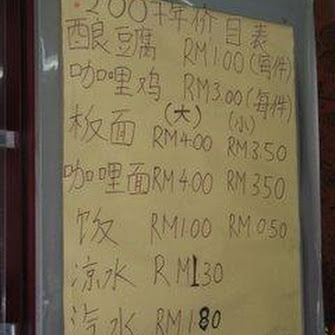 2007年价目表
酿豆腐 RM1.00(每件)
咖哩鸡 RM3.00(每件)
(大) (小)
板面 RM4.00 RM3.50
咖哩面 RM4.00 RM3.50
饭 RM1.00 RM0.50
凉水 RM1.30
汽水 RM1.80